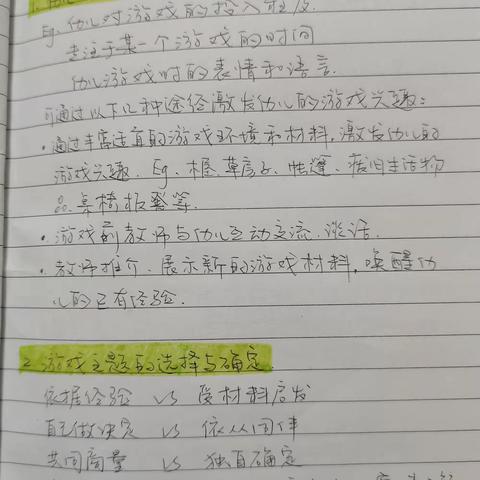 Eg. 幼儿对游戏的投入程度
专注于某一个游戏的时间
幼儿游戏时的表情和语言.
可通过以下几种途径激发幼儿的游戏兴趣:
·通过丰富适宜的游戏环境和材料,激发幼儿的
游戏兴趣. Eg. 棚、草房子、帐篷、废旧生活物
品、桌椅板凳等.
·游戏前教师与幼儿互动交流、谈话.
·教师推介、展示新的游戏材料,唤醒幼
儿的已有经验.
2.游戏主题的选择与确定.
依据经验 vs 受材料启发
自己做决定 vs 依从同伴
共同商量 vs 独自确定